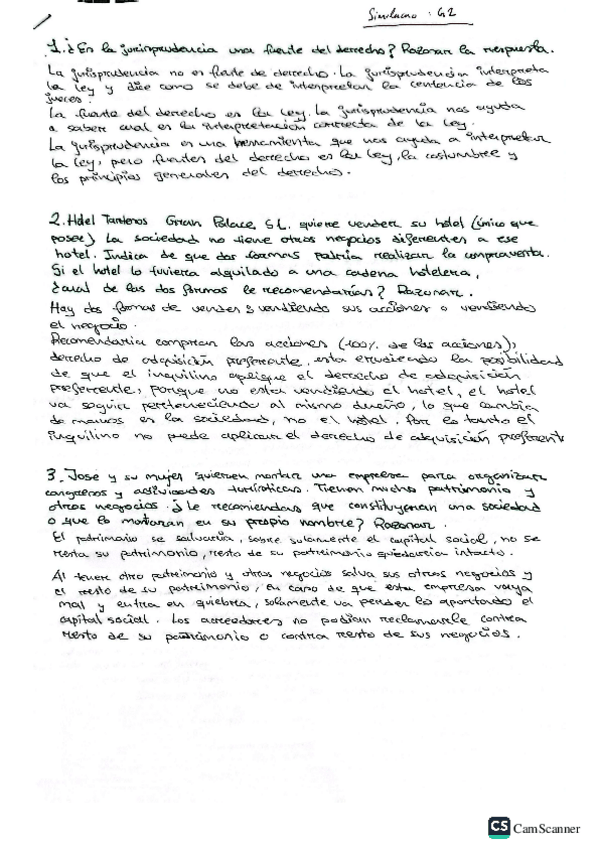 Simulacro : G2
1. ¿Es la jurisprudencia una fuente del derecho? Razonar la respuesta.
La jurisprudencia no es fuente de derecho. La jurisprudencia interpreta
la ley y dice como se debe de interpretar la sentencia de los
jueces.
La fuente del derecho es la ley. La jurisprudencia nos ayuda
a saber cual es la interpretación correcta de la ley.
La jurisprudencia es una herramienta que nos ayuda a interpretar
la ley, pero fuentes del derecho es la ley, la costumbre y
los principios generales del derecho.
2. Hotel Gran Palace, S.L. quiere vender su hotel (único que
posee) La sociedad no tiene otros negocios diferentes a ese
hotel. Indica de que dos formas podría realizar la compraventa.
Si el hotel lo tuviera alquilado a una cadena hotelera,
¿cual de las dos formas le recomendarías? Razonar.
Hay dos formas de vender: vendiendo sus acciones o vendiendo
el negocio.
Recomendaria comprar las acciones (100% de las acciones),
derecho de adquisición preferente, esta eludiendo la posibilidad
de que el inquilino aplique el derecho de adquisición
preferente, porque no esta vendiendo el hotel, el hotel
va seguir perteneciendo al mismo dueño, lo que cambia
de manos es la sociedad, no el hotel. Por lo tanto el
inquilino no puede aplicar el derecho de adquisición preferente
3. Jose y su mujer quieren montar una empresa para organizar
congresos y actividades turísticas. Tienen mucho patrimonio y
otros negocios. ¿Le recomiendas que constituyeran una sociedad
o que lo montaran en su propio nombre? Razonar.
El patrimonio se salvaria, sobre solamente el capital social, no se
resta su patrimonio, resto de su patrimonio quedaria intacto.
Al tener otro patrimonio y otros negocios salva sus otros negocios y
el resto de su patrimonio, en caso de que esta empresa vaya
mal y entra en quiebra, solamente va perder lo aportado el
capital social. Los acreedores no podian reclamarle contra
resto de su patrimonio o contra resto de sus negocios.
CS CamScanner